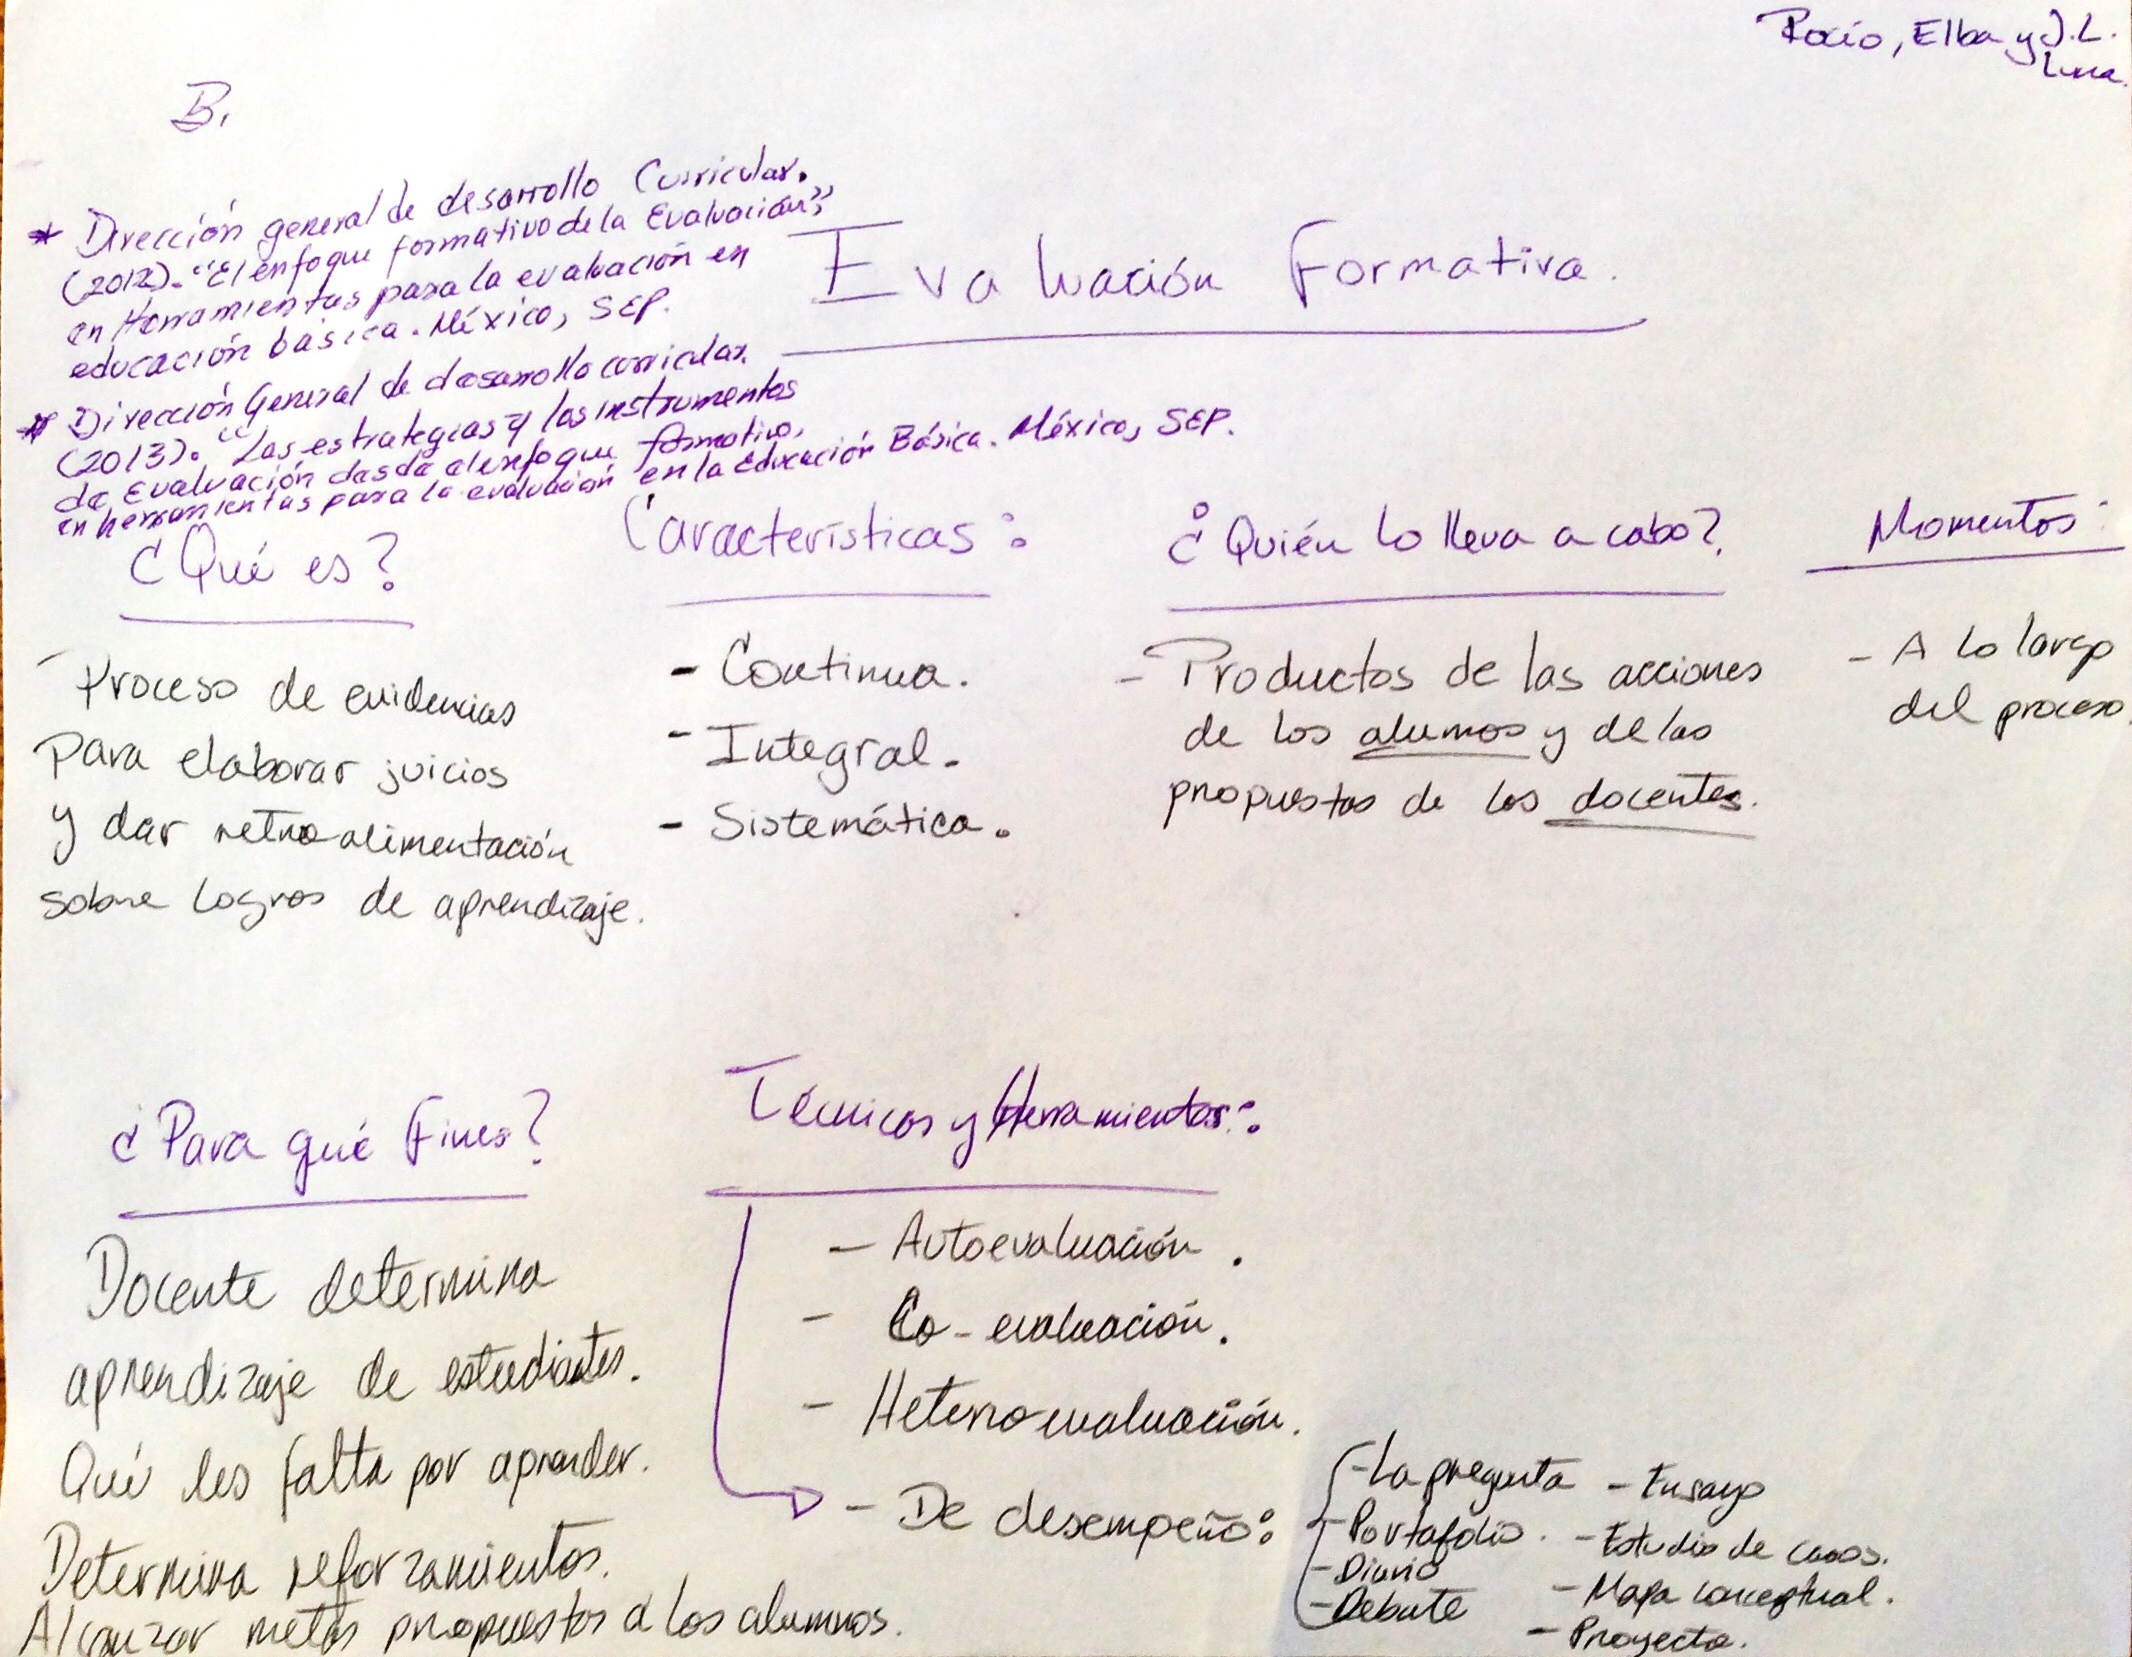 Rocío, Elba y J.L.
Luna.
B.
* Dirección general de desarrollo Curricular.
(2012). "El enfoque formativo de la Evaluación",
en Herramientas para la evaluación en
educación básica. México, SEP.
* Dirección General de desarrollo curricular.
(2013). "Las estrategias y los instrumentos
de Evaluación desde el enfoque formativo,
en herramientas para la evaluación en la Educación Básica. México, SEP.
Evaluación formativa.
¿Qué es?
- Proceso de evidencias
para elaborar juicios
y dar retroalimentación
sobre logros de aprendizaje.
Características:
- Continua.
- Integral.
- Sistemática.
¿Quién lo lleva a cabo?
- Productos de las acciones
de los alumos y de las
propuestas de los docentes.
Momentos:
- A lo largo
del proceso.
¿Para qué fines?
Docente determina
aprendizaje de estudiantes.
Qué les falta por aprender.
Determina reforzamientos.
Alcanzar metas propuestos a los alumnos.
Técnicas y Herramientas:
- Autoevaluación.
- Co-evaluación.
- Heteroevaluación.
- De desempeño:
- La pregunta
- Portafolio.
- Diario
- Debate
- Ensayo
- Estudio de casos.
- Mapa conceptual.
- Proyecto.